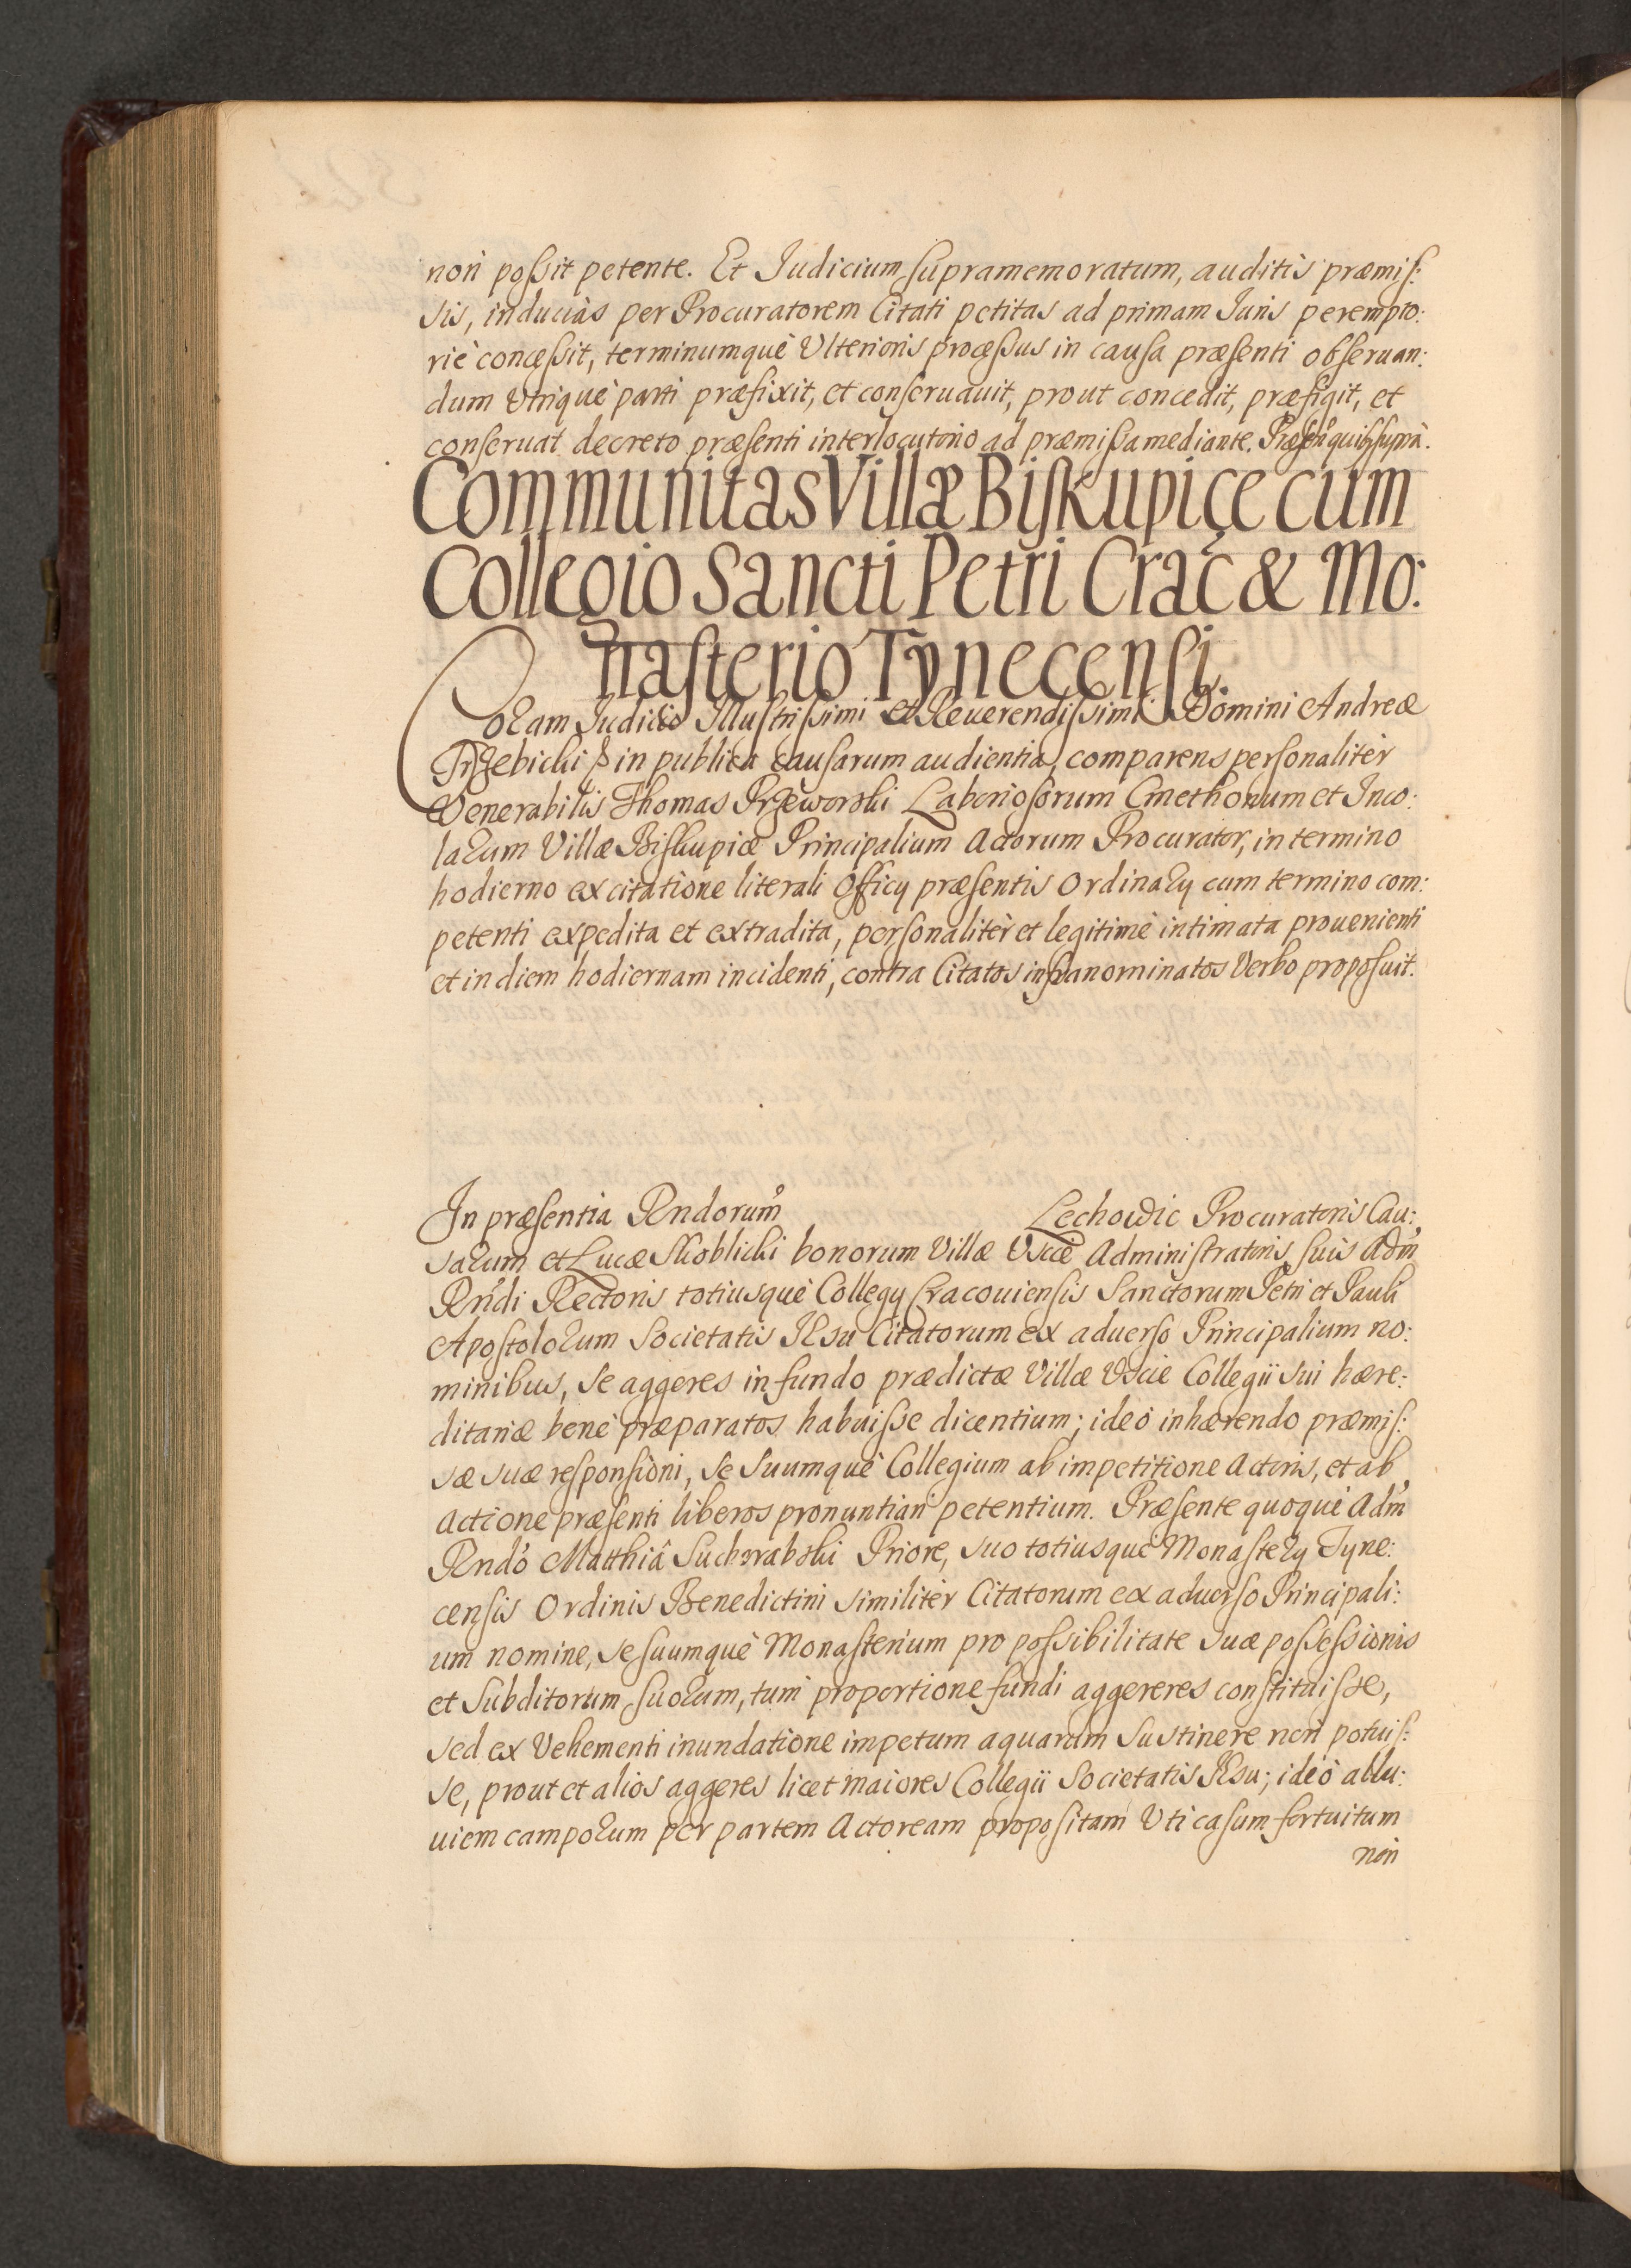 non poſsit petente. Et Judicium ſupramemoratum, auditis præmiſ:
sis, inducias per Procuratorem Citati petitas ad primam Juris perempto:
riè conceſsit, terminumquè Ulterioris proceſsus in causa præſenti obſeruan:
dum Utriquè parti præfixit, et conſeruauit, prout concedit, præfigit, et
conſeruat decreto præſenti interlocutorio ad præmiſsa mediante. Præſen quibus ſuprà.
Communitas Villæ Biſkupice cum
Collegio Sancti Petri Crac & Mo:
naſterio Tynecenſi.
Coram Judicio Illuſtriſsimi et Reuerendiſsimi Domini Andreæ
Trzebicki & in publica cauſarum audientia, comparens perſonalitèr
Venerabilis Thomas Przeworski Laborioſorum Cmethonum et Inco:
larum Villæ Biſkupicæ Principalium Actorum Procurator, in termino
hodierno ex citatione literali Officy præſentis Ordinary cum termino com:
petenti expedita et extradita, perſonalitèr et legitimè intimata prouenienti
et in diem hodiernam incidenti, contra Citatos infranominatos Verbo propoſuit.
In præſentia Rndorum Lechowic Procuratoris Cau:
sarum et Lucæ Skoblicki bonorum Villæ Uscie Adminiſtratoris, suis Adm
Rndi Rectoris totiusquè Collegy Cracouiensis Sanctorum Petri et Pauli
Apoſtolorum Societatis Jesu Citatorum ex aduerſo Principalium no:
minibus, se aggeres in fundo prædictæ Villæ Uscie Collegii sui hære:
ditariæ benè præparatos habuiſse dicentium; ideò inhærendo præmiſ:
sæ suæ reſponſioni, se suumquè Collegium ab impetitione Actoris, et ab
actione præſenti liberos pronuntiari petentium. Præſente quoquè Adm
Rndo Matthiâ Suchrabski Priore, suo totiusquè Monaſtery Tyne:
cenſis Ordinis Benedictini similitèr Citatorum ex aduerſo Principali:
um nomine, se ſuumquè Monaſterium pro poſsibilitate suæ poſseſsionis
et Subditorum ſuorum, tum proportione fundi aggereres conſtituiſse,
sed ex Vehementi inundatione impetum aquarum Sustinere non potuiſ:
se, prout et alios aggeres licet maiores Collegii Societatis Jesu; ideò allu:
uiem camporum per partem Actoream propoſitam Uti caſum fortuitum
non